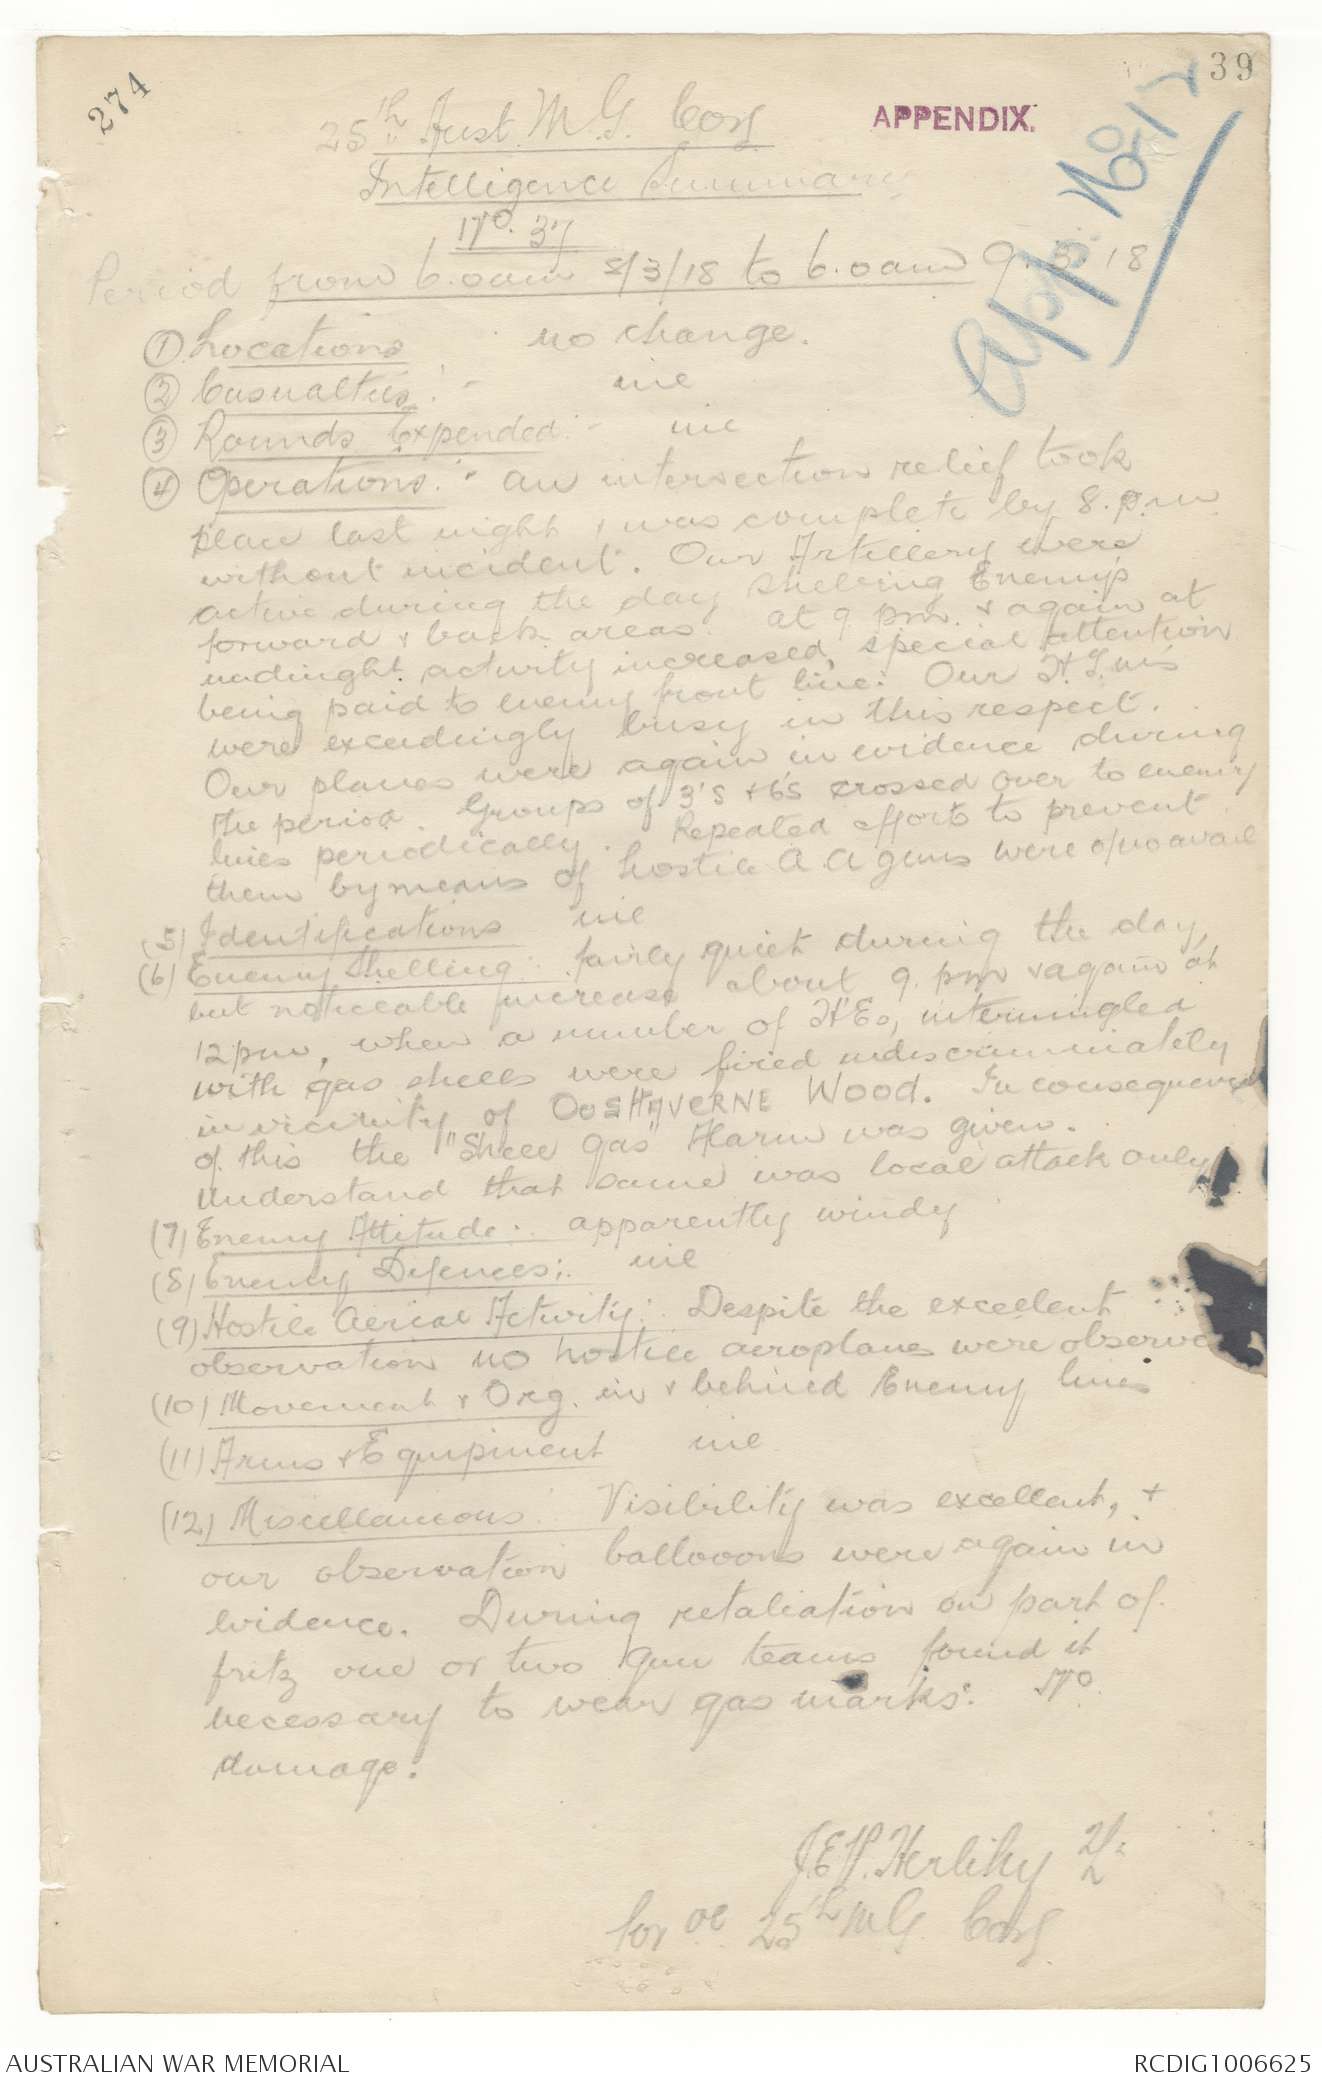 39
274
APPENDIX.
App. No 12
25th Aust. M. G. Coy
Intelligence Summary
No. 37
Period from 6.0am 8/3/18 to 6.0am 9.3.18
(1) Locations no change.
(2) Casualties:- nil
(3) Rounds Expended:- nil
(4) Operations:- an intersection relief took
place last night, was complete by 8.p.m
without incident. Our Artillery were
active during the day shelling Enemy's
forward & back areas. at 9 pm. & again at
madinght. activity increased, special attention
being paid to enemy front line. Our H.T.M's
were exceedingly busy in this respect.
Our planes were again in evidence during
the period. Groups of 3's & 6's crossed over to enemy
lines periodically. Repeated efforts to prevent
them by means of hostile A.A guns were of no avail
(5) Identifications nil
(6) Enemy Shelling: fairly quiet during the day,
but noticeable increase about 9. pm & again at
12pm, when a number of H'Es, intermingled
with gas shells were fired indiscriminately
in vicinity of OOSTTAVERNE WOOD. In consequence
of this the "Shell Gas" Alarm was given.
Understand that same was local attack only
(7) Enemy Attitude:. apparently windy
(8) Enemy Defences:. nil
(9) Hostile Aerial Activity: Despite the excellent
observation no hostile aeroplanes were observe
(10) Movement & Org. in & behind Enemy lines
(11) Arms & Equipment nil
(12) Miscellaneous: Visibility was excellent, &
our observation ballooons were again in
evidence. During retaliation on part of
fritz one or two gun teams found it
necessary to wear gas marks. No
damage.
J.E.P. Herlihy 2/Lt
for OC 25th M G. Coy
AUSTRALIAN WAR MEMORIAL
RCDIG1006625